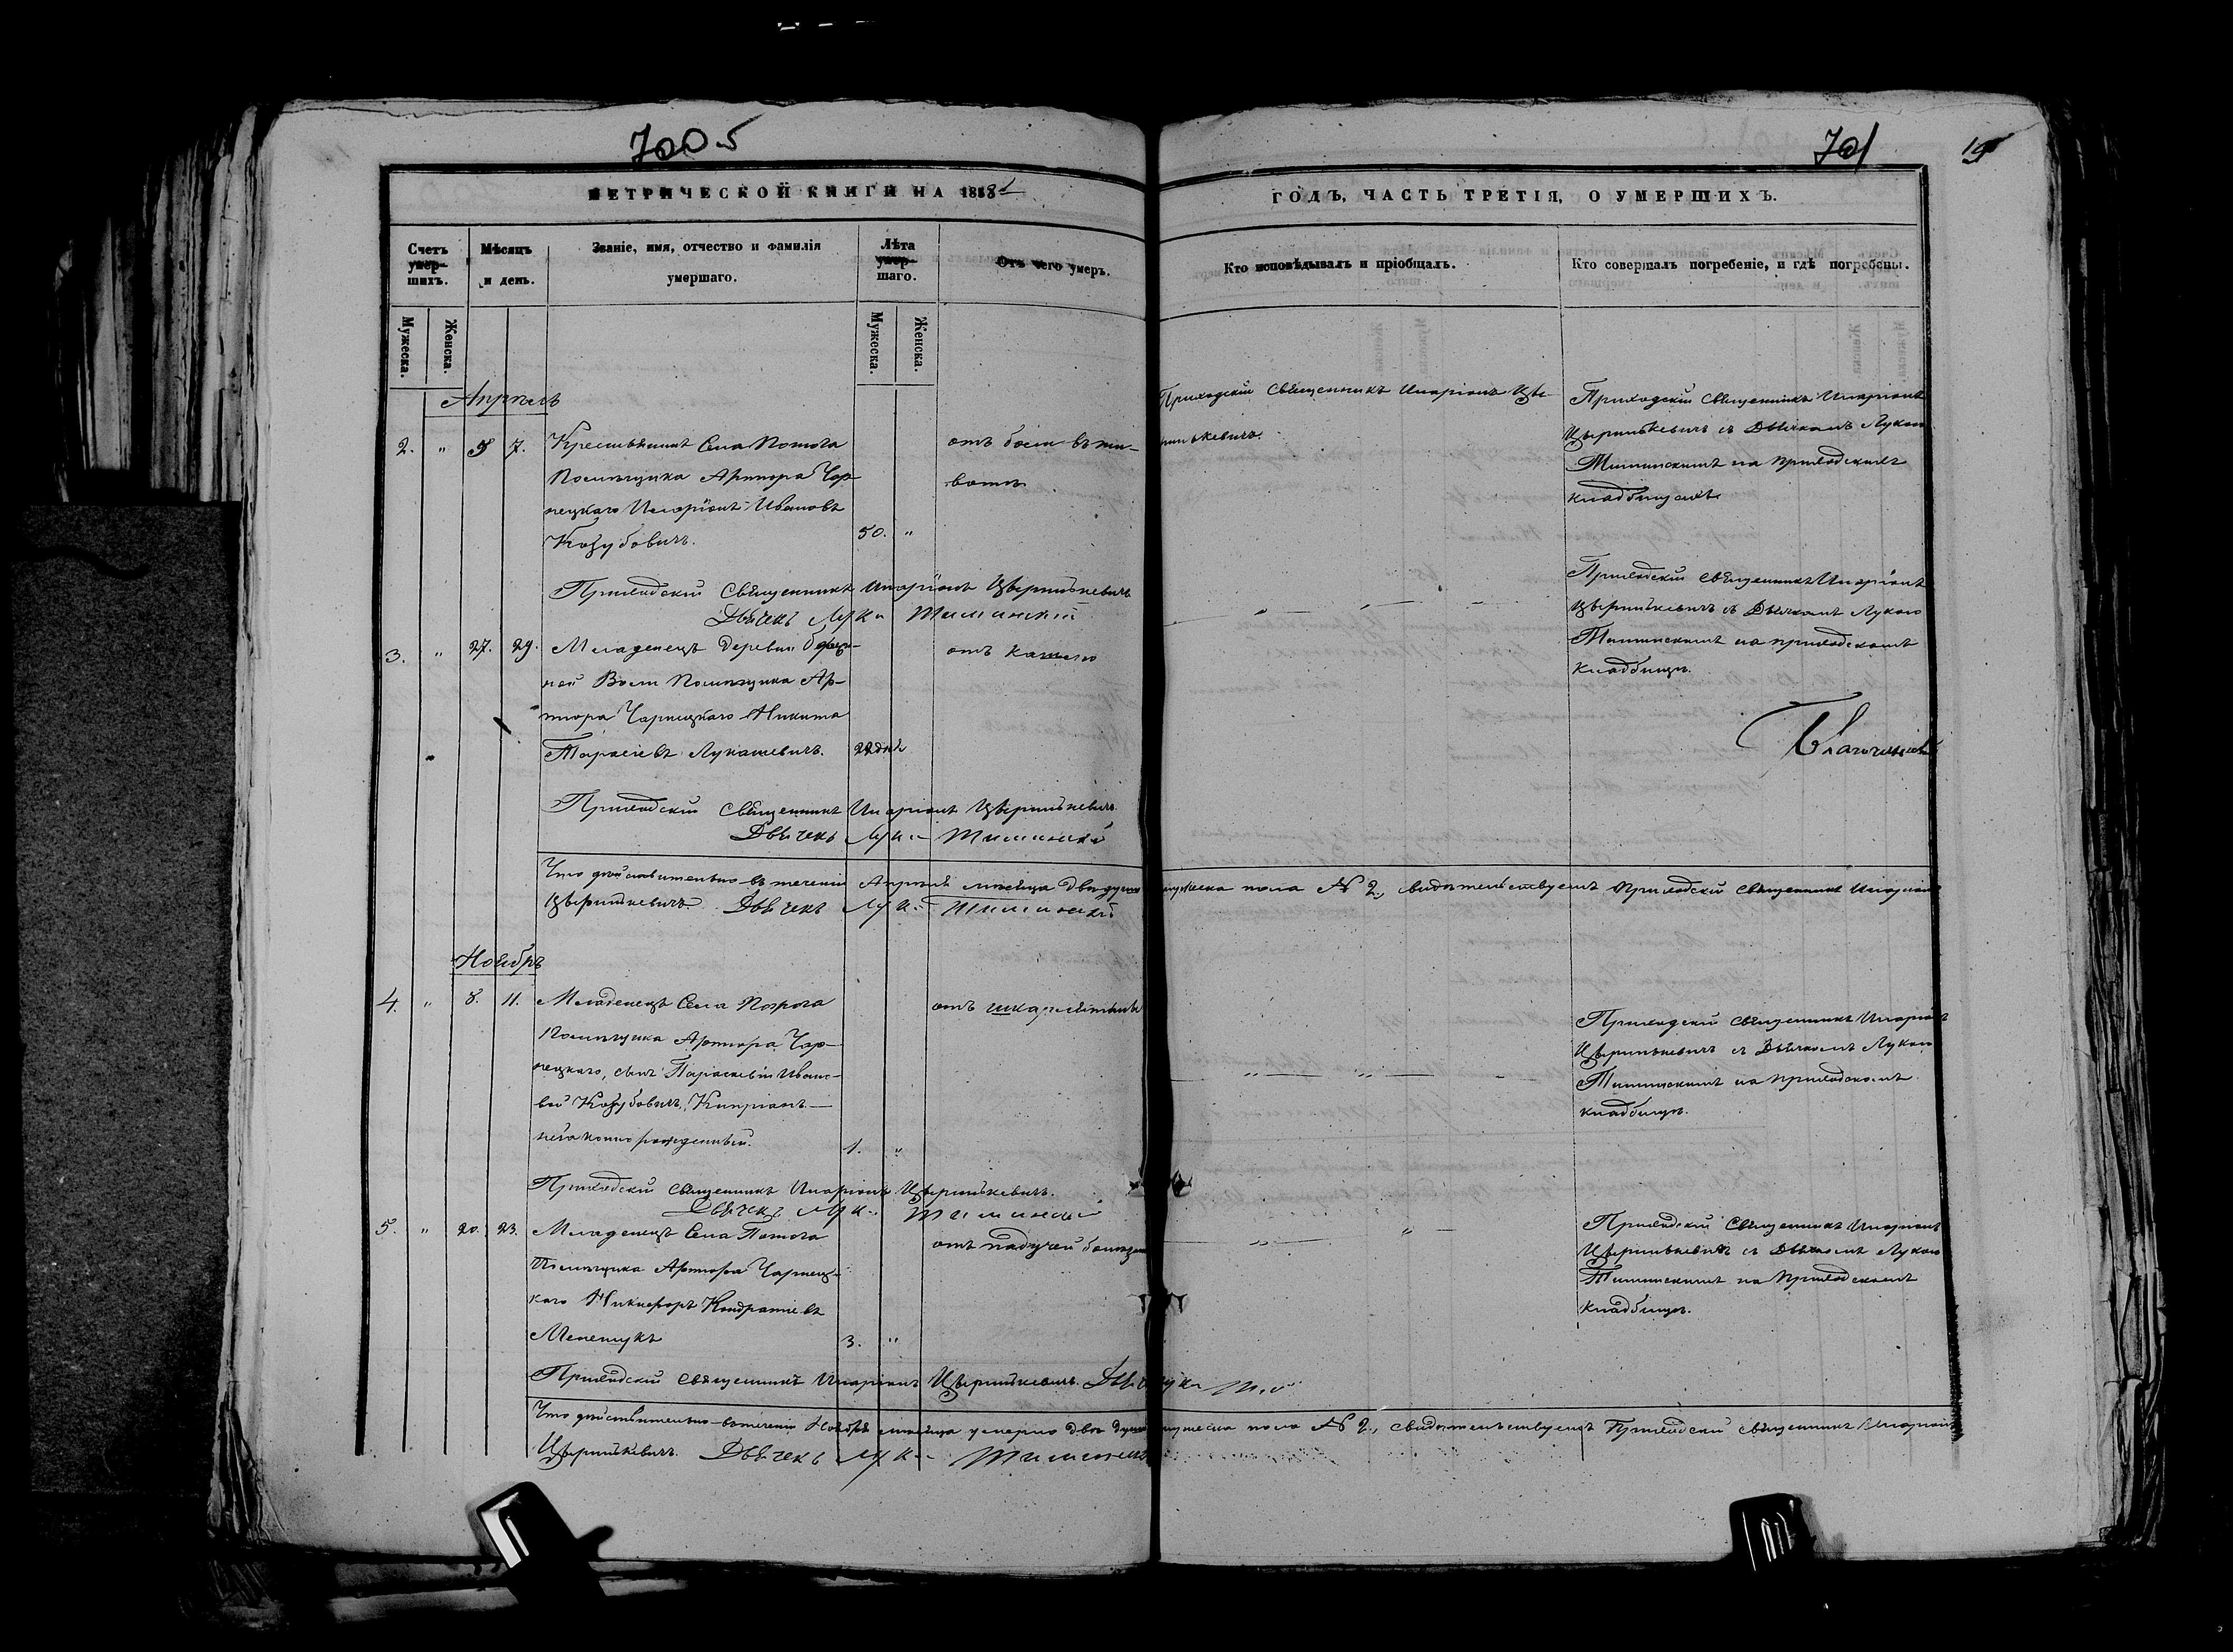 700 5
701
19
МЕТРИЧЕСКОЙ КНИГИ НА 185
ГОДЪ, ЧАСТЬ ТРЕТІЯ, О УМЕРШИХЪ.
Счетъ умер-шихъ.
Мѣсяцъ и день.
Званіе, имя, отчество и фамилія умершаго.
Лѣта умер-шаго.
Отъ чего умеръ.
Кто исповѣдывалъ и пріобщалъ.
Кто совершалъ погребеніе, и гдѣ погребены.
Мужеска.
Женска.
Мужеска.
Женска.
Апрѣль
2. " 5 7. Крестьянинъ Села Потога
Помѣщика Артюра Чар-
нецкаго Иларіонъ Ивановъ
Козубовичъ. 50. "
отъ боли въ жи-
вотѣ
Приходскій Священникъ Иларіонъ Цве-
ринькевичъ.
Приходскій Священникъ Иларіонъ
Цвѣринькевичъ съ Дьячкомъ Лукою
на приходскомъ
кладбищѣ
Приходскій Священникъ Иларіонъ Цвѣринькевичъ
Дьячекъ Лука
3. " 27. 29. Младенецъ деревни
Воли Помѣщика Ар-
тюра Чарнецкаго Никита
Тарасіевъ Лукашевичъ. 22 дня
отъ кашлю
Приходскій Священникъ Иларіонъ
Цвѣринькевичъ съ Дьячкомъ Лукою
на приходскомъ
кладбищѣ.
Благочинный
Приходскій Священникъ Иларіонъ Цвѣринькевичъ
Дьячекъ Лука
Что дѣйствительно въ теченіи Апрѣля мѣсяца двѣ души мужеска пола № 2, свидѣтельствуетъ Приходскій Священникъ Иларіонъ
Цвѣринькевичъ. Дьячекъ Лука
Ноябрь
4. " 8. 11. Младенецъ Села
Помѣщика Артюра Чар-
нецкаго, сынъ Параскевіи Ивано-
вой Козубовичъ, Кипріанъ
незаконнорожденный. 1. "
отъ шкарлятины
Приходскій Священникъ Иларіонъ
Цвѣринькевичъ съ Дьячкомъ Лукою
на приходскомъ
кладбищѣ.
Приходскій Священникъ Иларіонъ Цвѣринькевичъ.
Дьячекъ Лука
5. " 20. 23. Младенецъ Села Потога
Помѣщика Артюра Чарнец-
каго Никифоръ Кондратіевъ
3. "
отъ падучей болѣзни
Приходскій Священникъ Иларіонъ
Цвѣринькевичъ съ Дьячкомъ Лукою
на приходскомъ
кладбищѣ.
Приходскій Священникъ Иларіонъ Цвѣринькевичъ.
Что дѣйствительно въ теченіи Ноября мѣсяца умерло двѣ души мужеска пола № 2, свидѣтельствуетъ Приходскій Священникъ Иларіонъ
Цвѣринькевичъ. Дьячекъ Лука